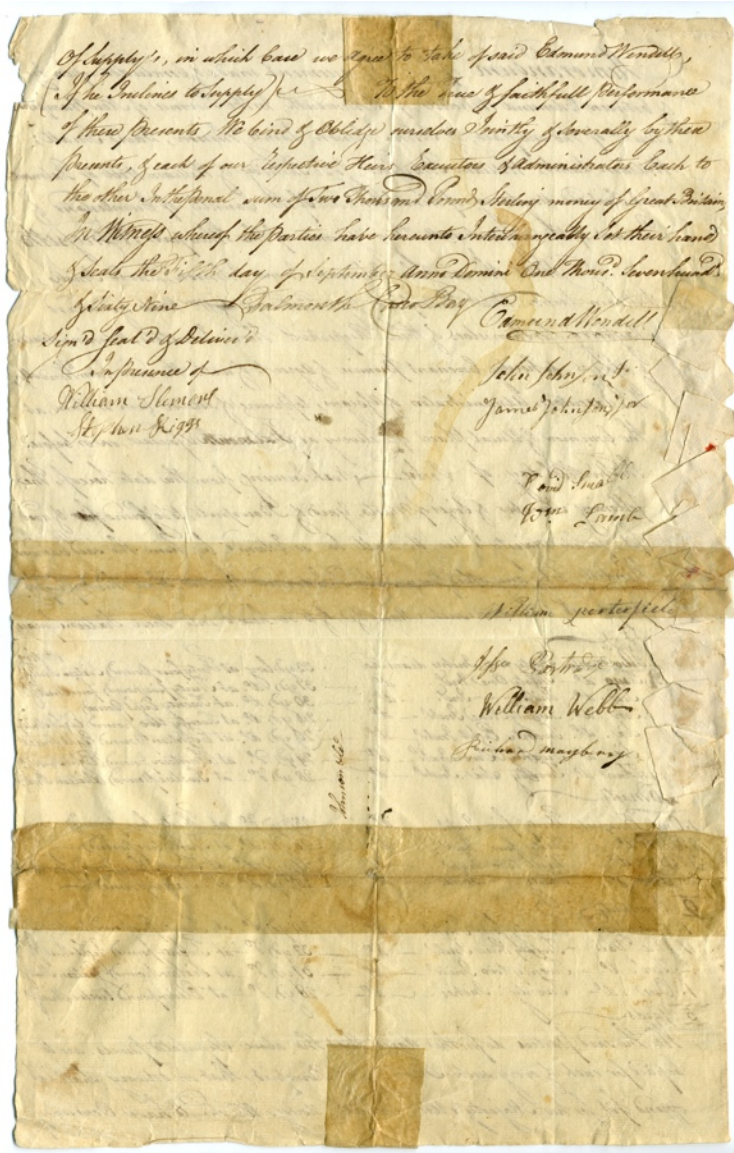 Of Supply's, in which Case we agree to take of said Edmund Wendell,
(If he Inclines to Supply) To the True & faithfull performance
of these presents We bind & Obledge ourselves Jointly & Severally by these
presents, & each of our respective Heirs Executors & Administrators Each to
the other In the penal sum of Two Thousand Pounds Sterling money of Great Britain,
In Witness whereof the parties have hereunto Interchangeably Set their hand
& Seals the Fifth day of September Anno Domini One Thous.d Seven hund.d
& Sixty Nine Falmouth Casco Bay
Edmund Wendell
Sign'd Seal'd & Deliver'd
In presence of
William Slemens
Stephen Riggs
John Johnson
James Johnson Jor
David Small
Wm Lamb
William porterfield
Jesse Partridge
William Webb
Richard mayberry